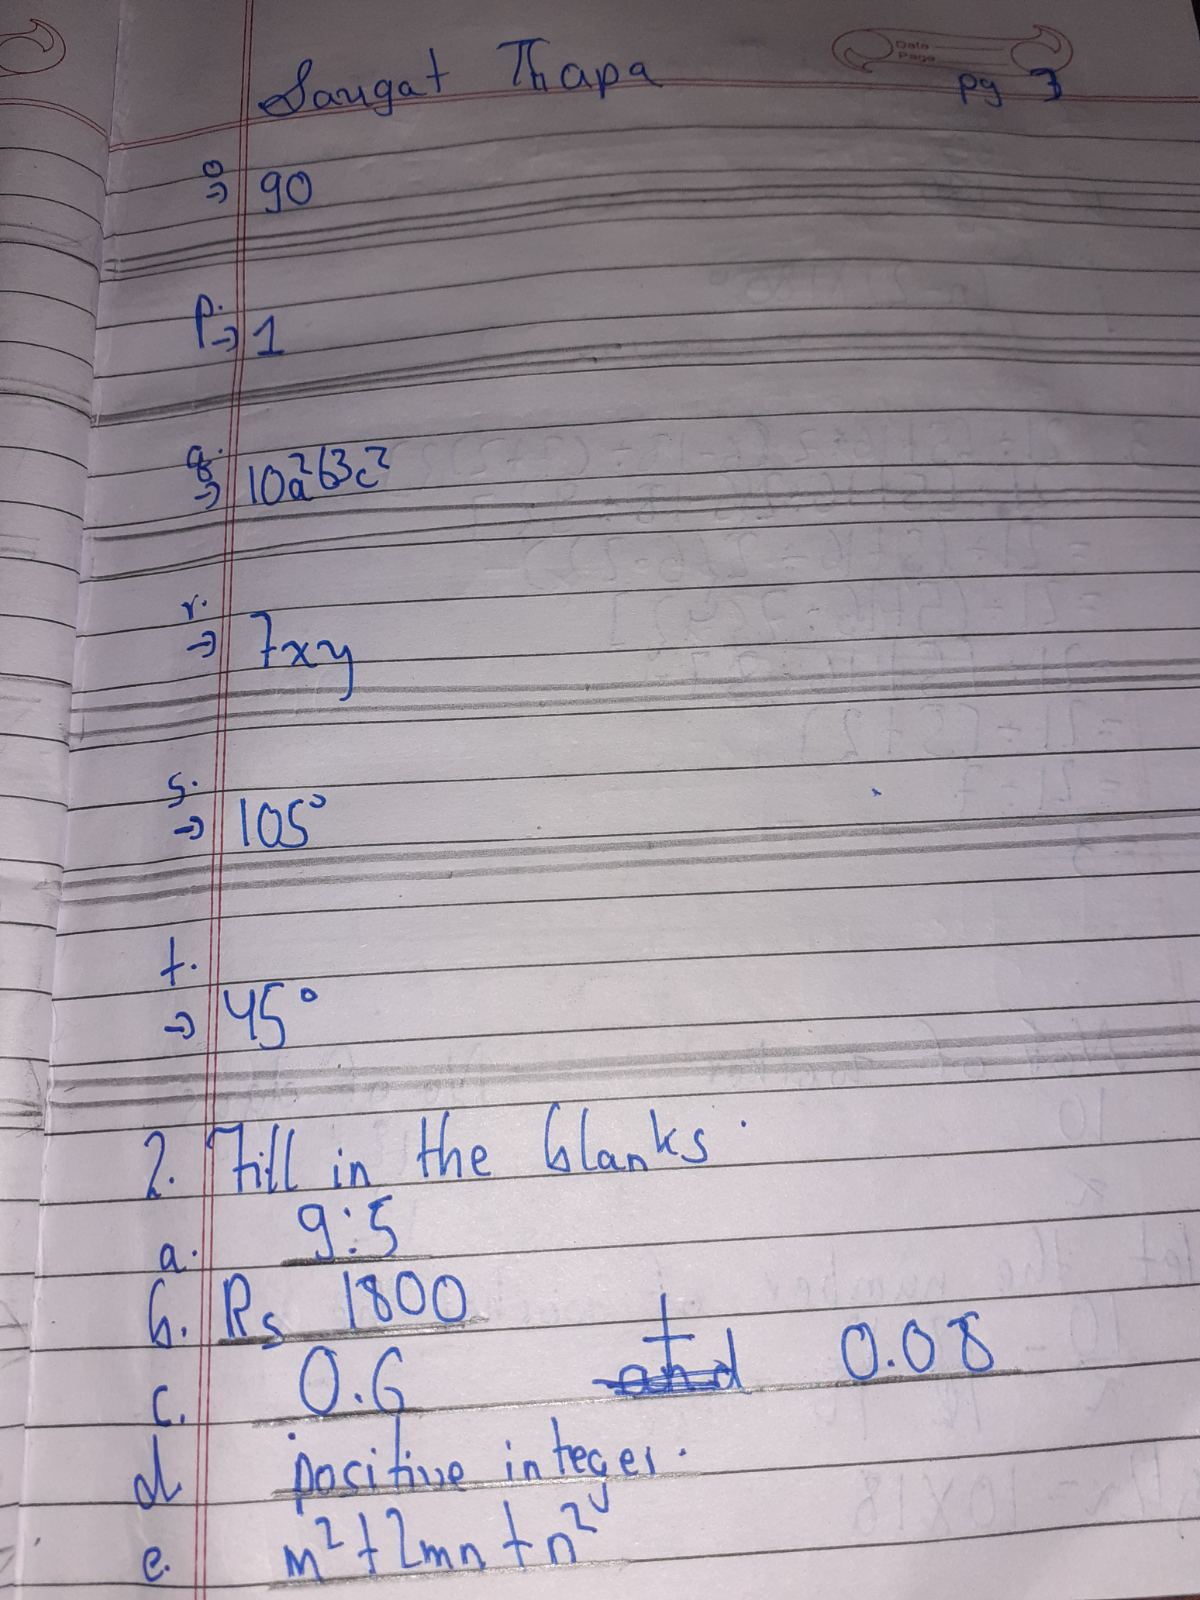 Date
Page
Saugat Thapa
pg 3
o
→ 90
p.
→ 1
q.
→ 10a²b3c²
r.
→ 7xy
s.
→ 105°
t.
→ 45°
2. Fill in the blanks.
a. 9:5
b. Rs 1800
c. 0.6 + 0.08
d positive integer.
e. m²+2mn+n²